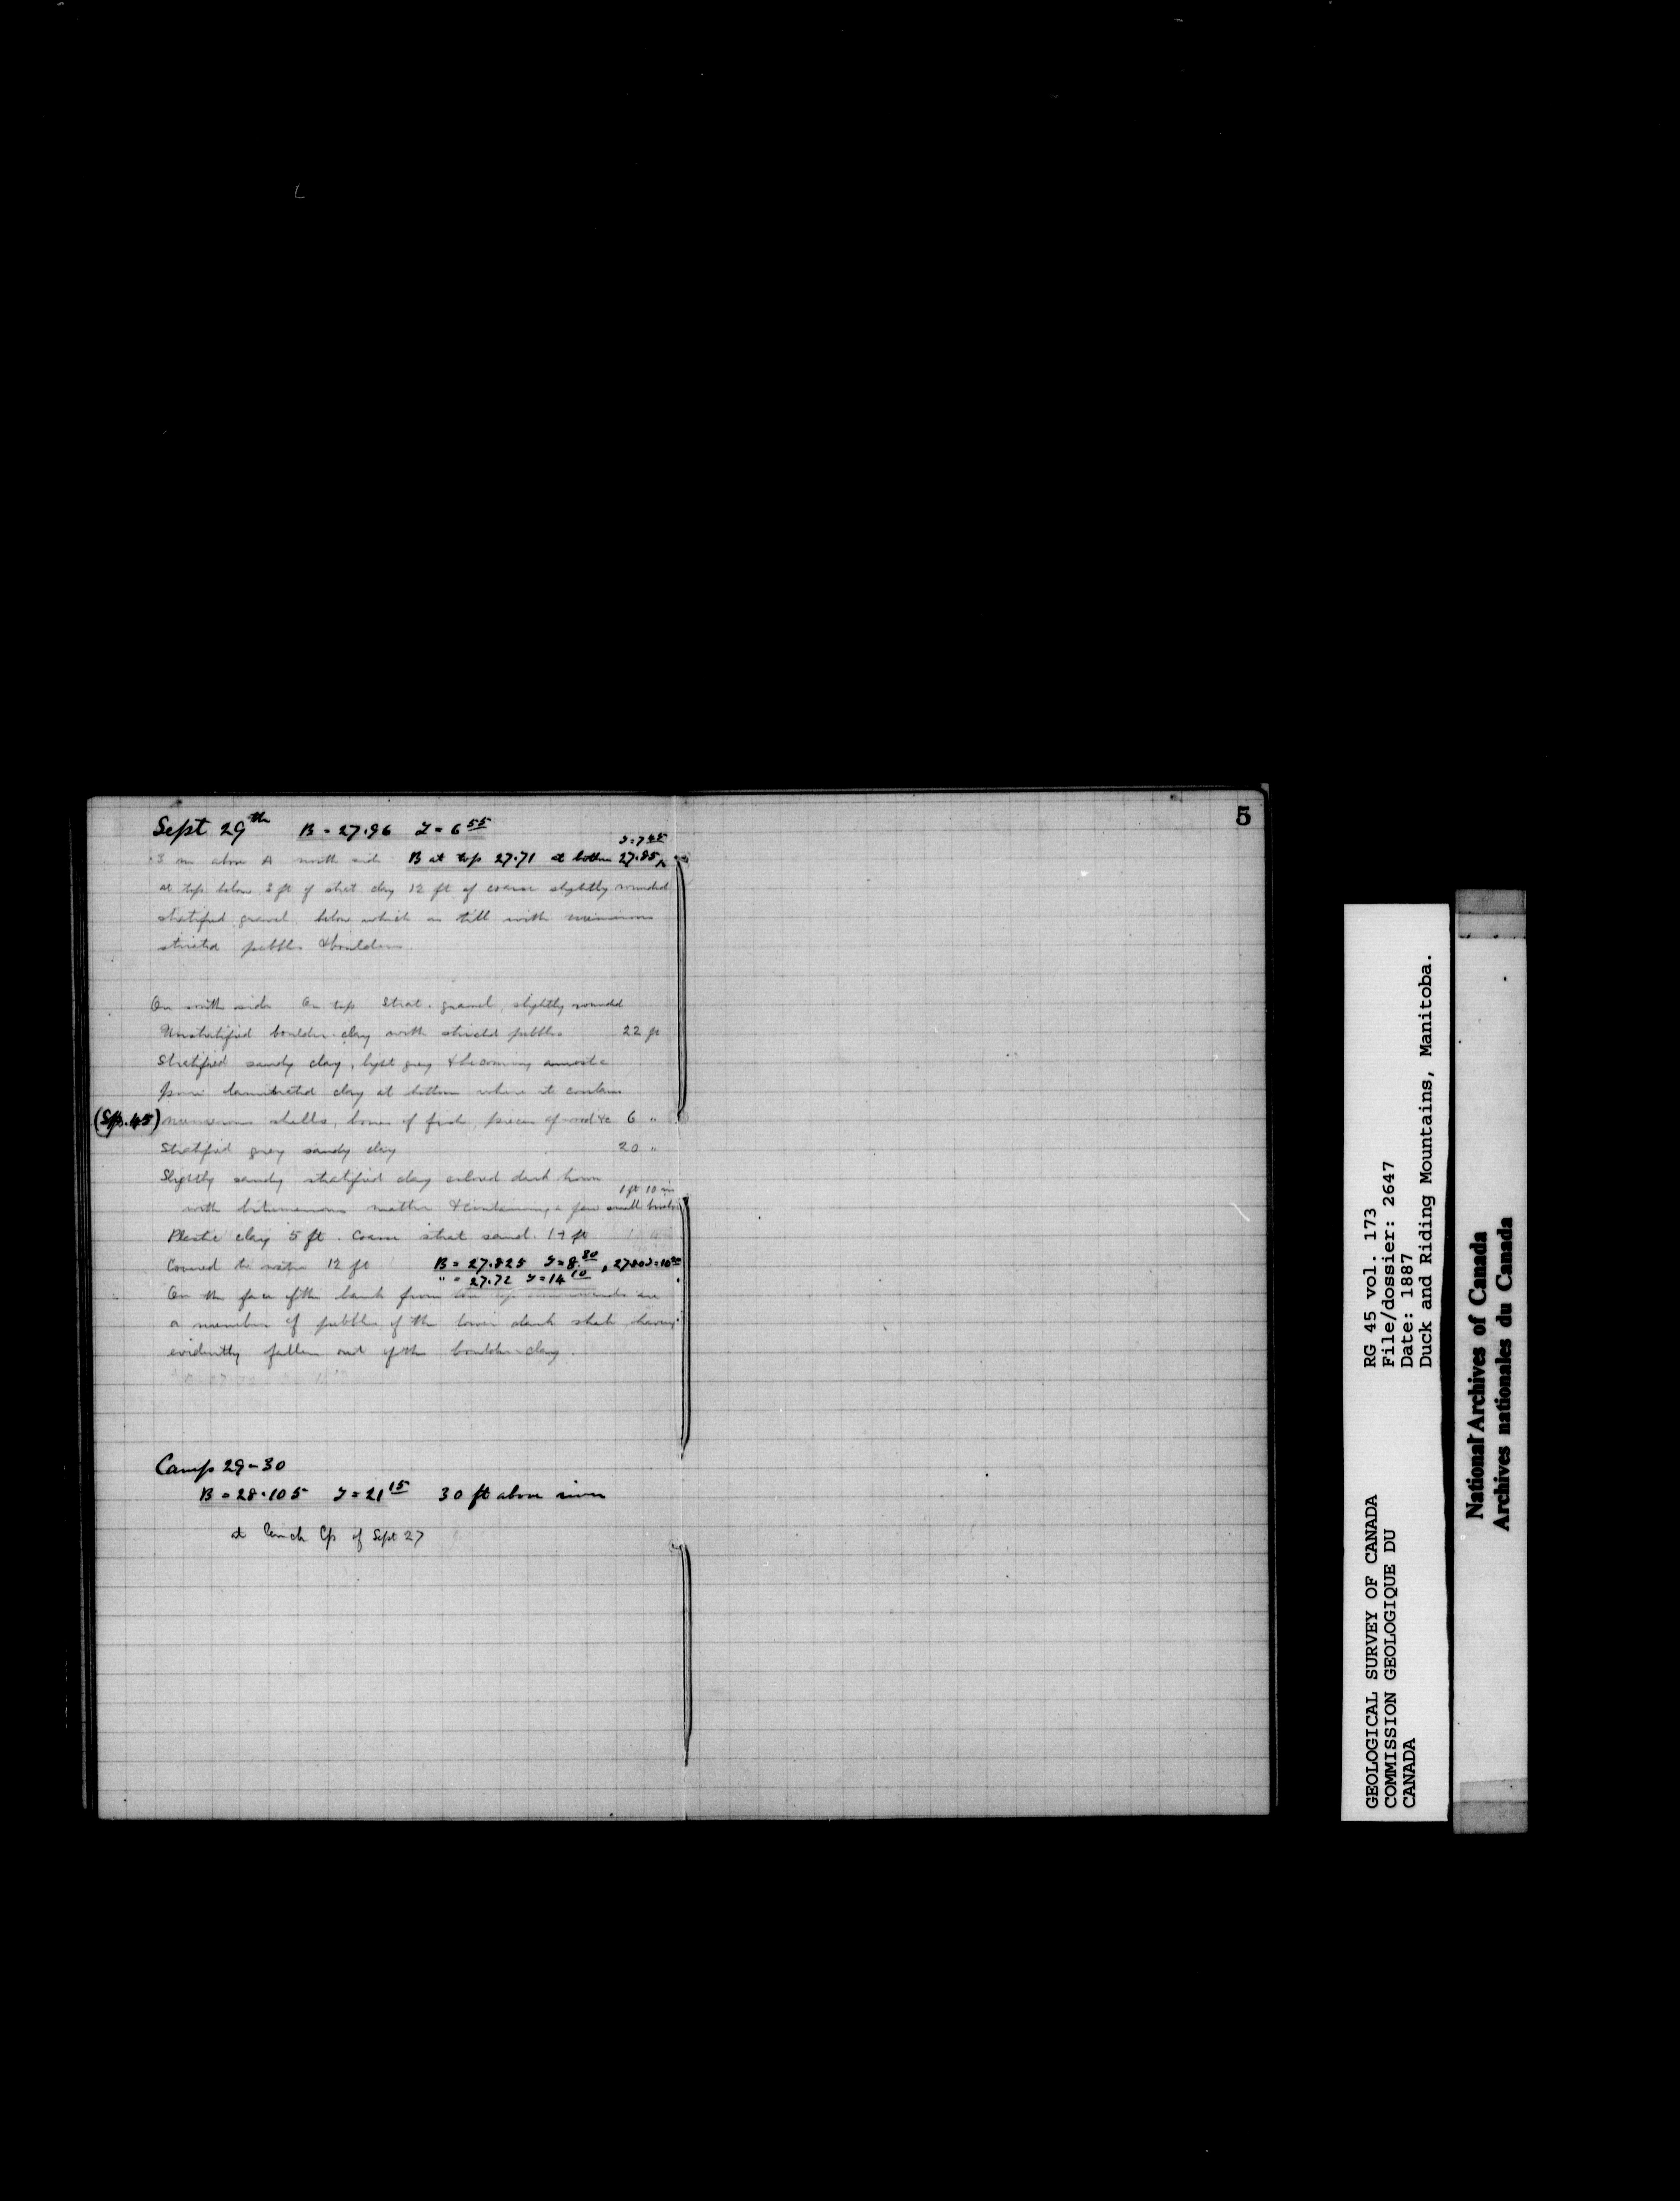 5
Sept 29th B = 27.96 T = 6 55
T = 7 45
.3 m above A north side B at top 27.71 at bottom 27.85
at top below 2 ft of strat clay 12 ft of coarse slightly rounded
stratified gravel, below which is till with numerous
striated pebbles & boulders
On north side On top Strat. gravel, slightly rounded
Unstratified boulder clay with striated pebbles 22 ft
Stratified sandy clay, light grey & becoming almost a
pure laminated clay at bottom where it contains
(Sp. 45) numerous shells, bones of fish, pieces of wood &c 6 "
Stratified grey sandy clay 20 "
Slightly sandy stratified clay colored dark brown
1 ft 10 in
with bituminous matter & containing a few small
Plastic clay 5 ft. Coarse strat sand. ft
Covered to water 12 ft B = 27.825 T = 8.30, 27.80
" = 27.72 T = 14 10
On the face of the bank from top are
a number of pebbles of the lower dark shale having
evidently fallen out of the boulder clay.
Camp 29-30
B = 28.105 T = 21 15 30 ft above river
at lunch Cp of Sept 27
GEOLOGICAL SURVEY OF CANADA
COMMISSION GEOLOGIQUE DU
CANADA
RG 45 vol. 173
File/dossier: 2647
Date: 1887
Duck and Riding Mountains, Manitoba.
National Archives of Canada
Archives nationales du Canada